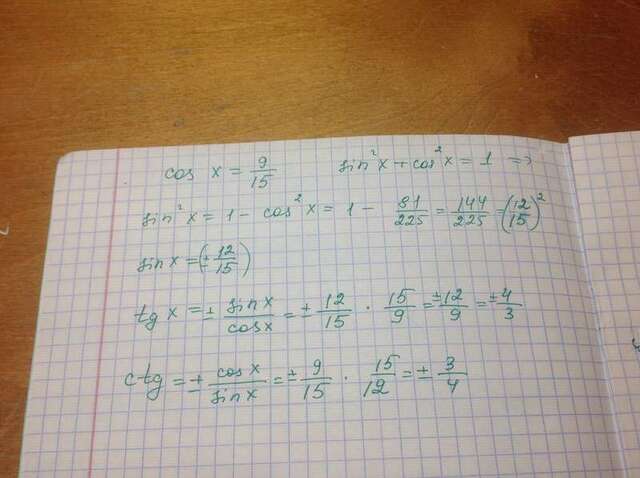 cos x = 9/15   sin²x + cos²x = 1 =>
sin²x = 1 - cos²x = 1 - 81/225 = 144/225 = (12/15)²
sin x = (± 12/15)
tg x = ± sin x/cos x = ± 12/15 · 15/9 = ±12/9 = ±4/3
ctg = ± cos x/sin x = ± 9/15 · 15/12 = ± 3/4